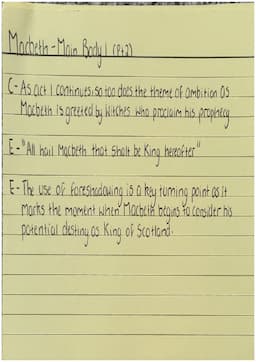 Macbeth - Main Body 1 (Pt2)
C - As act 1 continues, so too does the theme of ambition as
Macbeth is greeted by Witches who proclaim his prophecy
E - "All hail Macbeth that shalt be King hereafter"
E - The use of foreshadowing is a key turning point as it
marks the moment when Macbeth begins to consider his
potential destiny as King of Scotland.